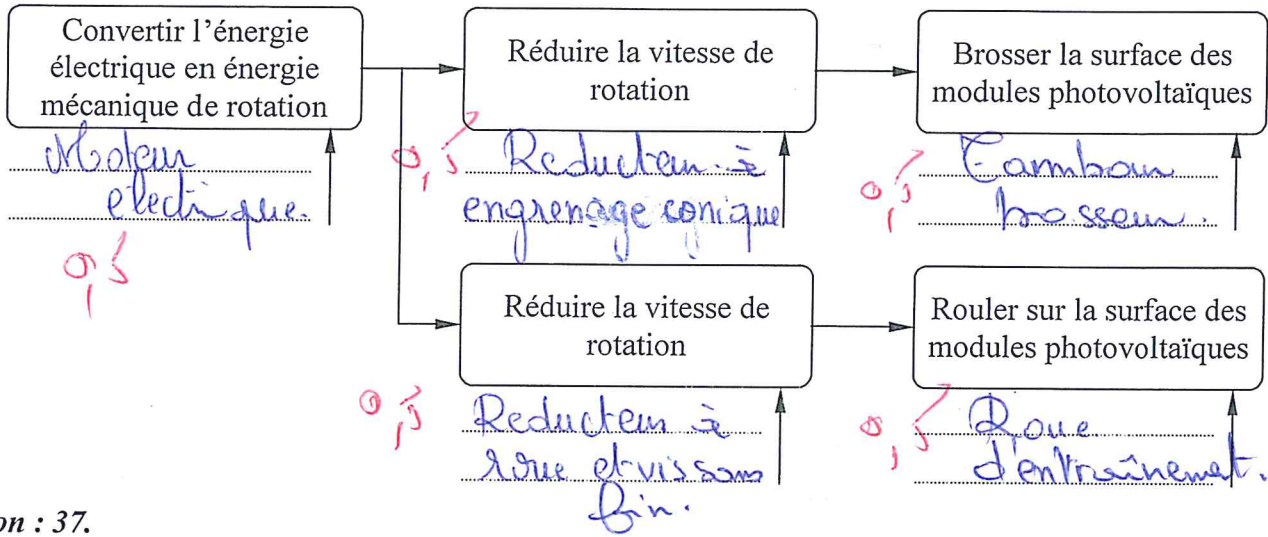 Convertir l'énergie
électrique en énergie
mécanique de rotation
Moteur
electrique.
0,5
Réduire la vitesse de
rotation
0,5
Reducteur à
engrenage conique
Brosser la surface des
modules photovoltaïques
0,5
Tambour
brosseur.
Réduire la vitesse de
rotation
0,5
Reducteur à
roue et vis sans
fin.
Rouler sur la surface des
modules photovoltaïques
0,5
Roue
d'entraînemet.
on : 37.